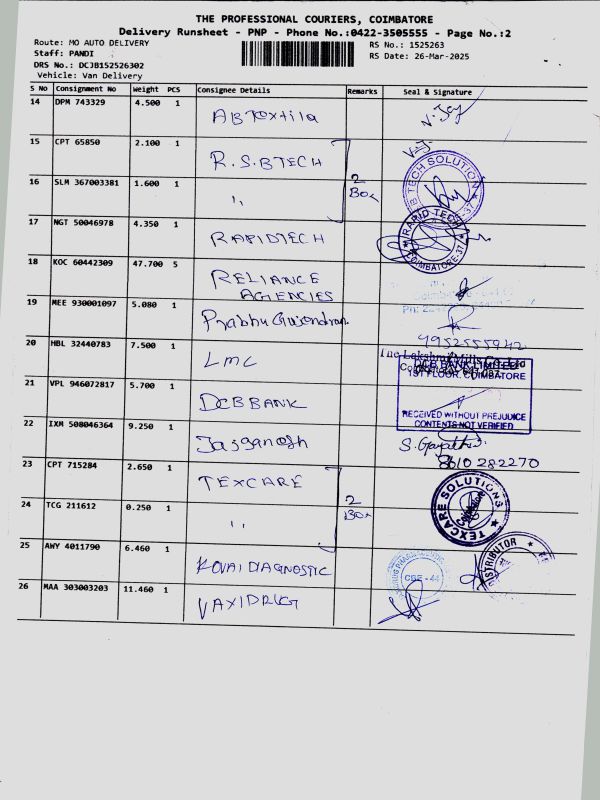 THE PROFESSIONAL COURIERS, COIMBATORE
Delivery Runsheet - PNP - Phone No.:0422-3505555 - Page No.:2
Route: MO AUTO DELIVERY
RS No.: 1525263
Staff: PANDI
RS Date: 26-Mar-2025
DRS No.: DCJB152526302
Vehicle: Van Delivery
S No Consignment No Weight PCS Consignee Details Remarks Seal & Signature
14 DPM 743329 4.500 1 ABTextila
15 CPT 65850 2.100 1 R.S.BTECH
16 SLM 367003381 1.600 1 〃 2 Box
B TECH SOLUTION
17 NGT 50046978 4.350 1 RAPIDTECH
RAPID TECH
COIMBATORE-37
18 KOC 60442309 47.700 5 RELIANCE AGENCIES
19 MEE 930001097 5.080 1 Prabhu
20 HBL 32440783 7.500 1 LMC
The Lakshmi Mills Co. Ltd
21 VPL 946072817 5.700 1 DCB BANK
DCB BANK LIMITED
1ST FLOOR, COIMBATORE
RECEIVED WITHOUT PREJUDICE
CONTENTS NOT VERIFIED
22 IXM 508046364 9.250 1 Jaiganesh
8610 282270
23 CPT 715284 2.650 1 TEXCARE
24 TCG 211612 0.250 1 〃 2 Box
TEXCARE SOLUTIONS
Coimbatore
25 AWY 4011790 6.460 1 KOVAI DIAGNOSTIC
DISTRIBUTOR
26 MAA 303003203 11.460 1 VAXIDRUG
CBE - 44